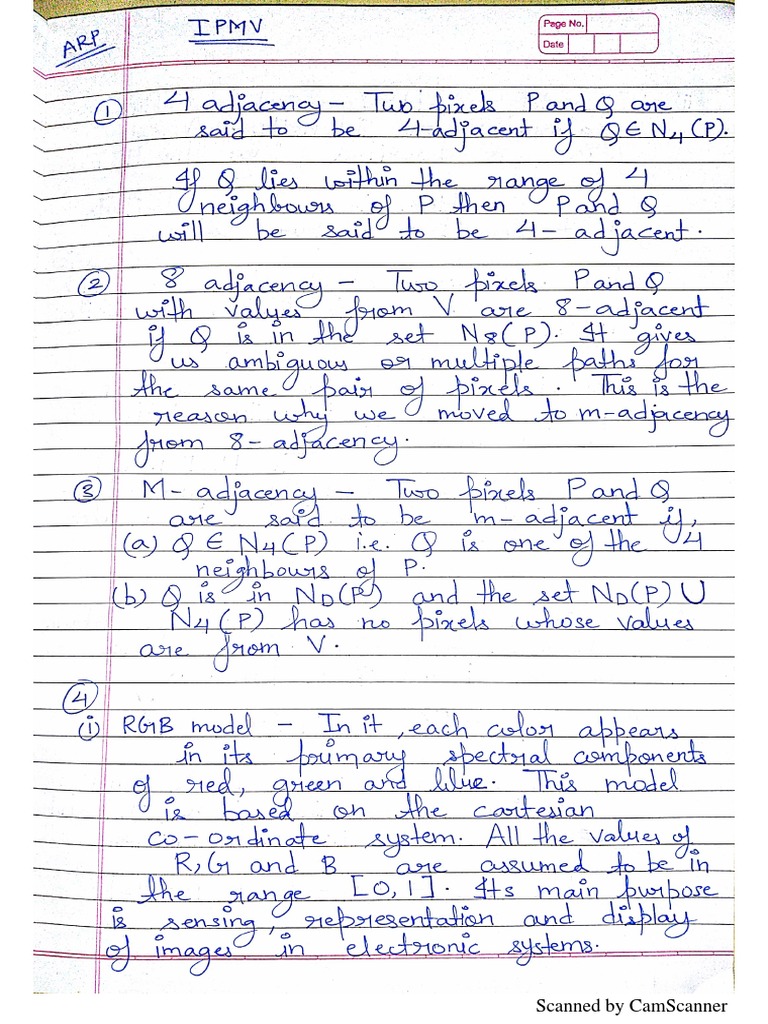 ARP
IPMV
Page No.
Date
① 4 adjacency - Two pixels P and Q are
said to be 4-adjacent if Q ∈ N4 (P).
If Q lies within the range of 4
neighbours of P then P and Q
will be said to be 4- adjacent.
② 8 adjacency - Two pixels P and Q
with values from V are 8-adjacent
if Q is in the set N8(P). It gives
us ambiguous or multiple paths for
the same pair of pixels. This is the
reason why we moved to m-adjacency
from 8- adjacency.
③ M- adjacency - Two pixels P and Q
are said to be m-adjacent if,
(a) Q ∈ N4(P) i.e. Q is one of the 4
neighbours of P.
(b) Q is in ND(P) and the set ND(P) U
N4 (P) has no pixels whose values
are from V.
④
(i) RGB model - In it, each color appears
in its primary spectral components
of red, green and blue. This model
is based on the cartesian
co-ordinate system. All the values of
R, G and B are assumed to be in
the range [0,1]. Its main purpose
is sensing, representation and display
of images in electronic systems.
Scanned by CamScanner